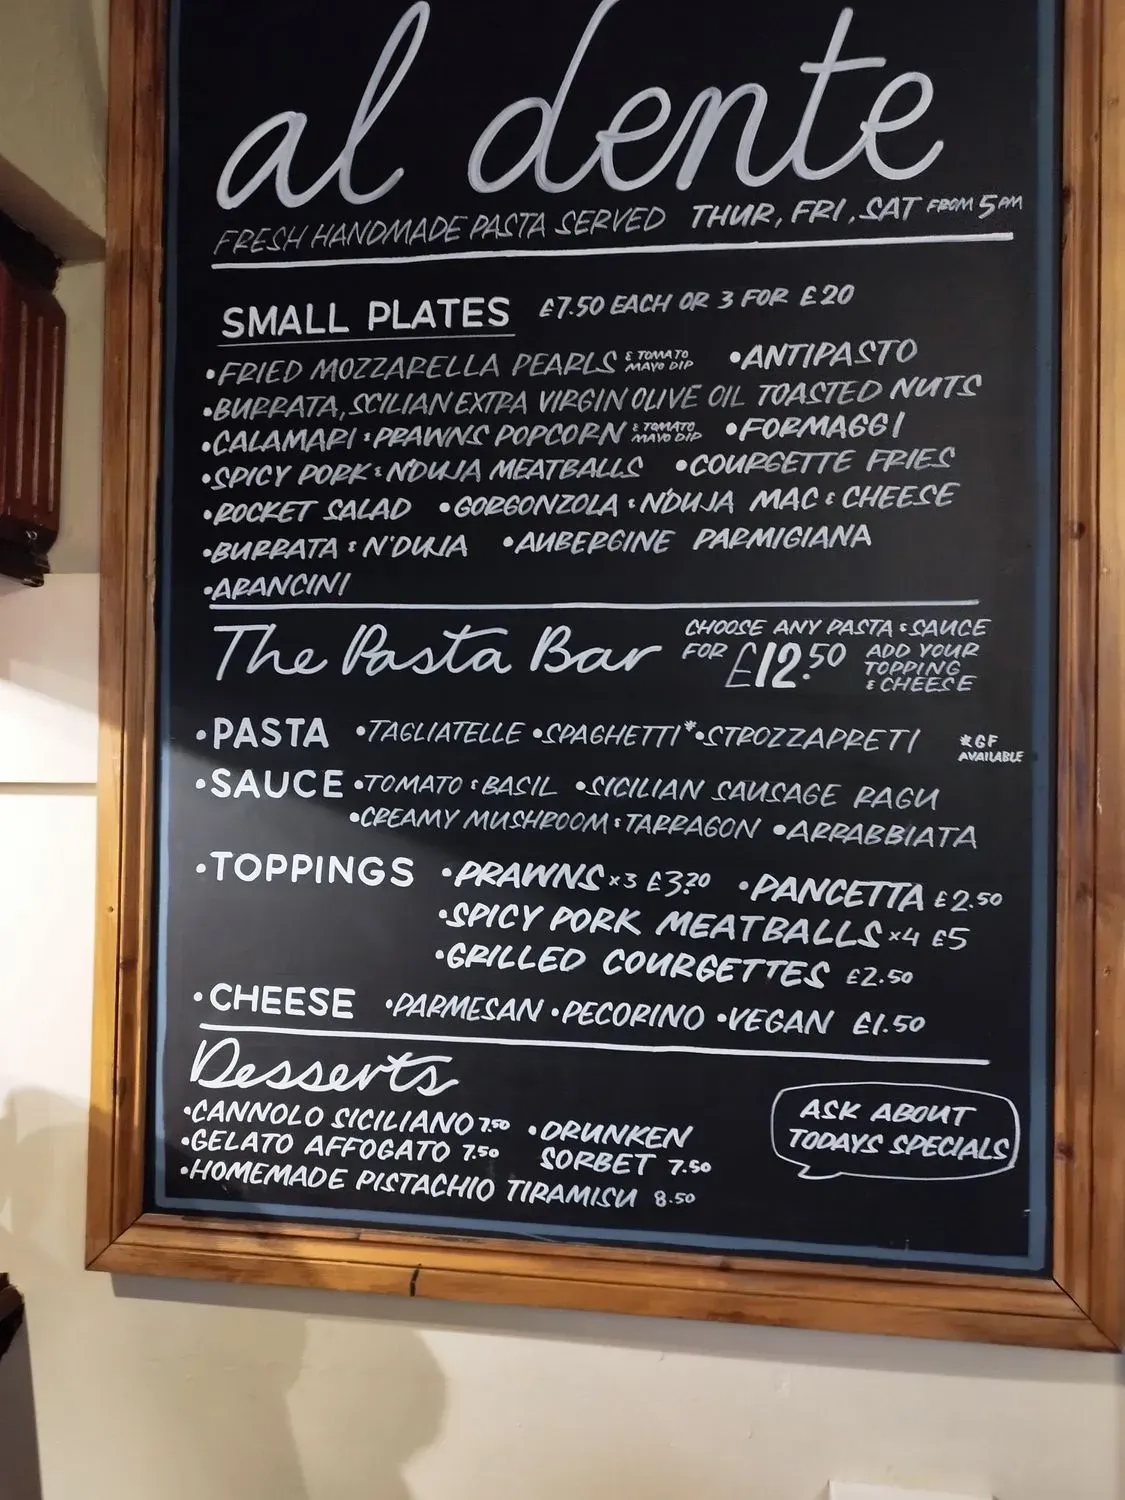 al dente
FRESH HANDMADE PASTA SERVED THUR, FRI, SAT FROM 5PM
SMALL PLATES £7.50 EACH OR 3 FOR £20
•FRIED MOZZARELLA PEARLS & TOMATO MAYO DIP •ANTIPASTO
•BURRATA, SCILIAN EXTRA VIRGIN OLIVE OIL TOASTED NUTS
•CALAMARI & PRAWNS POPCORN & TOMATO MAYO DIP •FORMAGGI
•SPICY PORK & N'DUJA MEATBALLS •COURGETTE FRIES
•ROCKET SALAD •GORGONZOLA & N'DUJA MAC & CHEESE
•BURRATA & N'DUJA •AUBERGINE PARMIGIANA
•ARANCINI
The Pasta Bar CHOOSE ANY PASTA & SAUCE
FOR £12.50 ADD YOUR
TOPPING
& CHEESE
•PASTA •TAGLIATELLE •SPAGHETTI* •STROZZAPRETI *GF
AVAILABLE
•SAUCE •TOMATO & BASIL •SICILIAN SAUSAGE RAGU
•CREAMY MUSHROOM & TARRAGON •ARRABBIATA
•TOPPINGS •PRAWNS ×3 £3.20 •PANCETTA £2.50
•SPICY PORK MEATBALLS ×4 £5
•GRILLED COURGETTES £2.50
•CHEESE •PARMESAN •PECORINO •VEGAN £1.50
Desserts
•CANNOLO SICILIANO 7.50 •DRUNKEN
•GELATO AFFOGATO 7.50 SORBET 7.50
•HOMEMADE PISTACHIO TIRAMISU 8.50
ASK ABOUT
TODAYS SPECIALS